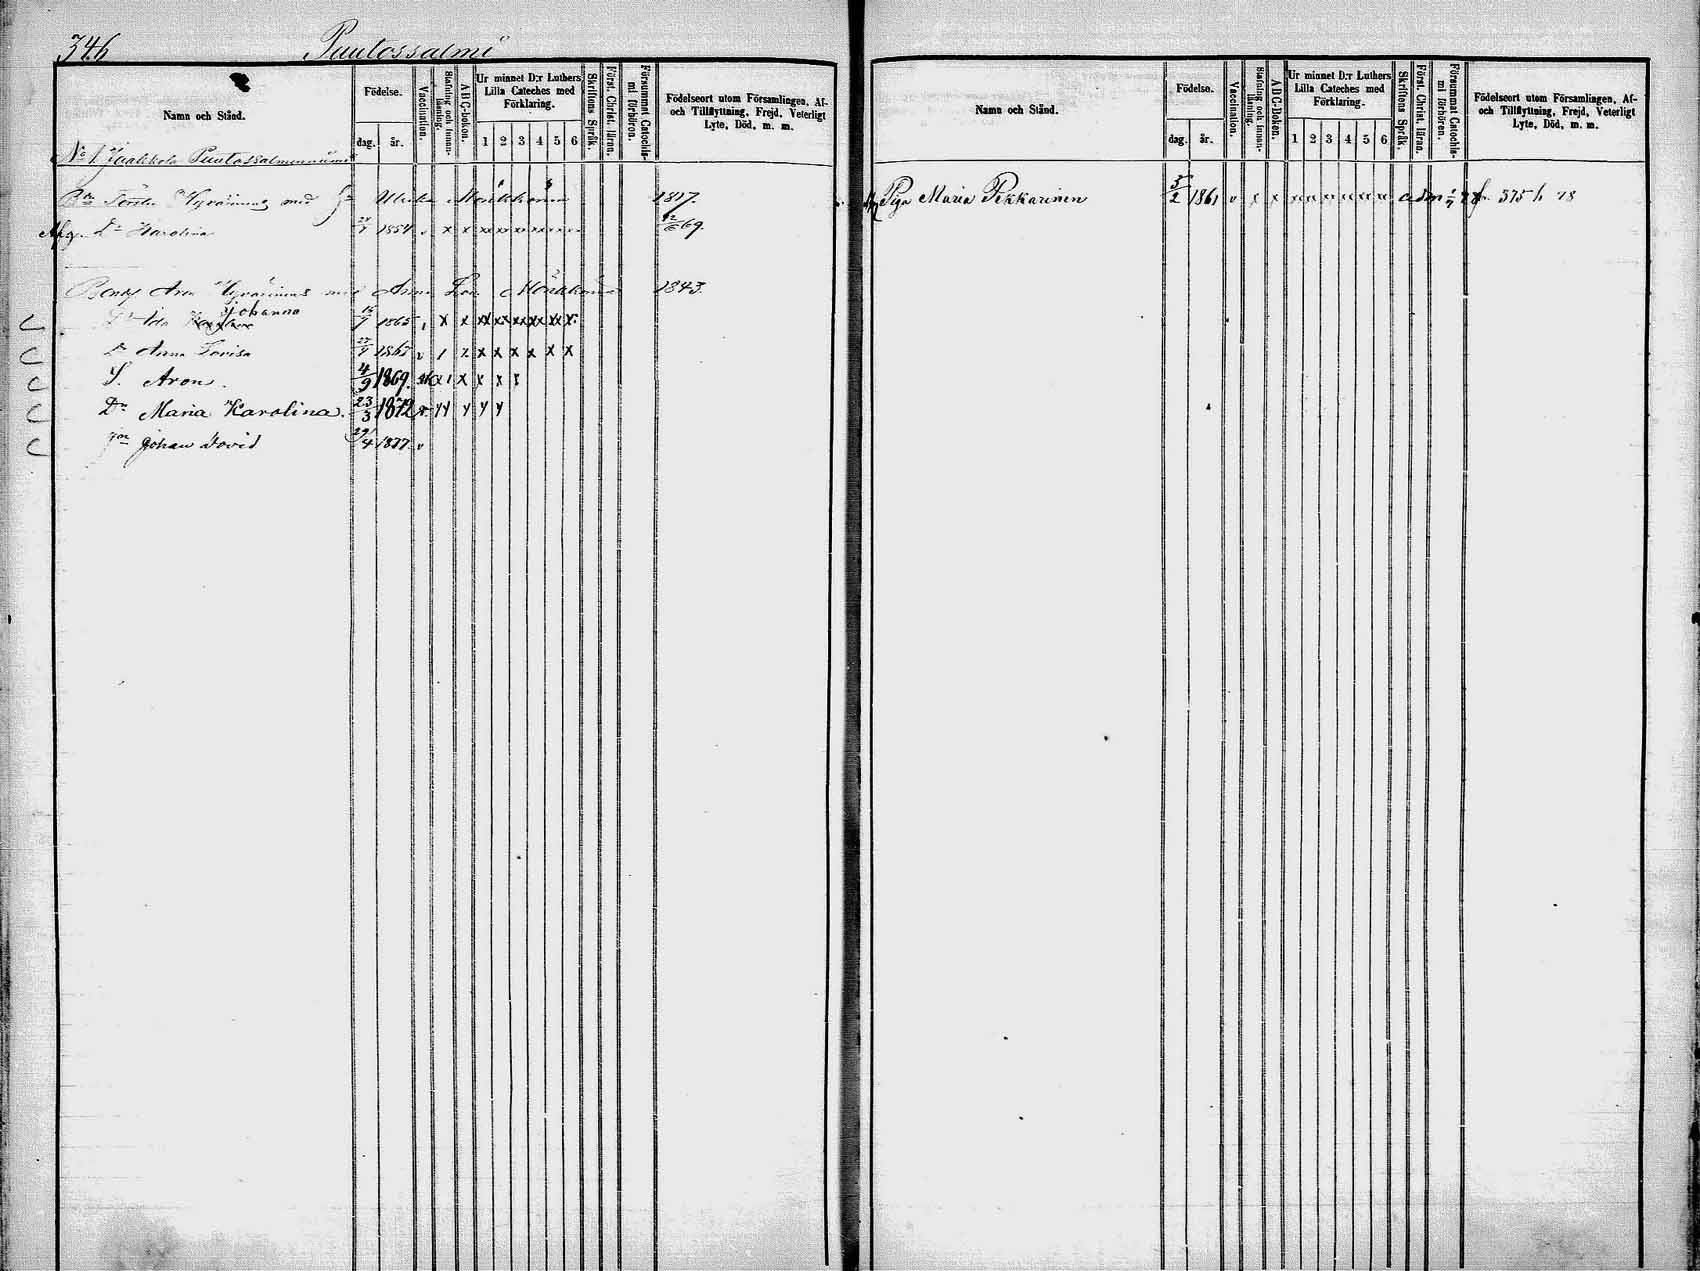 346 Puutossalmi
Namn och Stånd.
Födelse.
dag. år.
Vaccination.
Stafning och Innan-läsning.
A B C-boken.
Ur minnet D:r Luthers Lilla Cateches med Förklaring.
1 2 3 4 5 6
Skriftens Språk.
Först. Christ. läran.
Försummat Catechis-mi förhören.
Födelseort utom Församlingen, Af- och Tillflyttning, Frejd, Veterligt Lyte, Död, m. m.
No 1 Jaakkola
med Ulrika Mönkkönen 1817.
Dr Karolina 1854 v x x x x x x x x 69.
Aron Hyvärinens med Anna Mönkkönen 1843.
Dr Ida Johanna 1865 x x x x x x x x x x
Dr Anna Lovisa 1867 v x x x x x x
S. Aron. 4/9 1869. x x x
Dr Maria Karolina. 23/3 1872 v
Son Johan David 29/4 1877 v
Namn och Stånd.
Födelse.
dag. år.
Vaccination.
Stafning och Innan-läsning.
A B C-boken.
Ur minnet D:r Luthers Lilla Cateches med Förklaring.
1 2 3 4 5 6
Skriftens Språk.
Först. Christ. läran.
Försummat Catechis-mi förhören.
Födelseort utom Församlingen, Af- och Tillflyttning, Frejd, Veterligt Lyte, Död, m. m.
Piga Maria Pekkarinen 5/2 1861 v x x x x x x x x adm 78 fr. 375 h 78